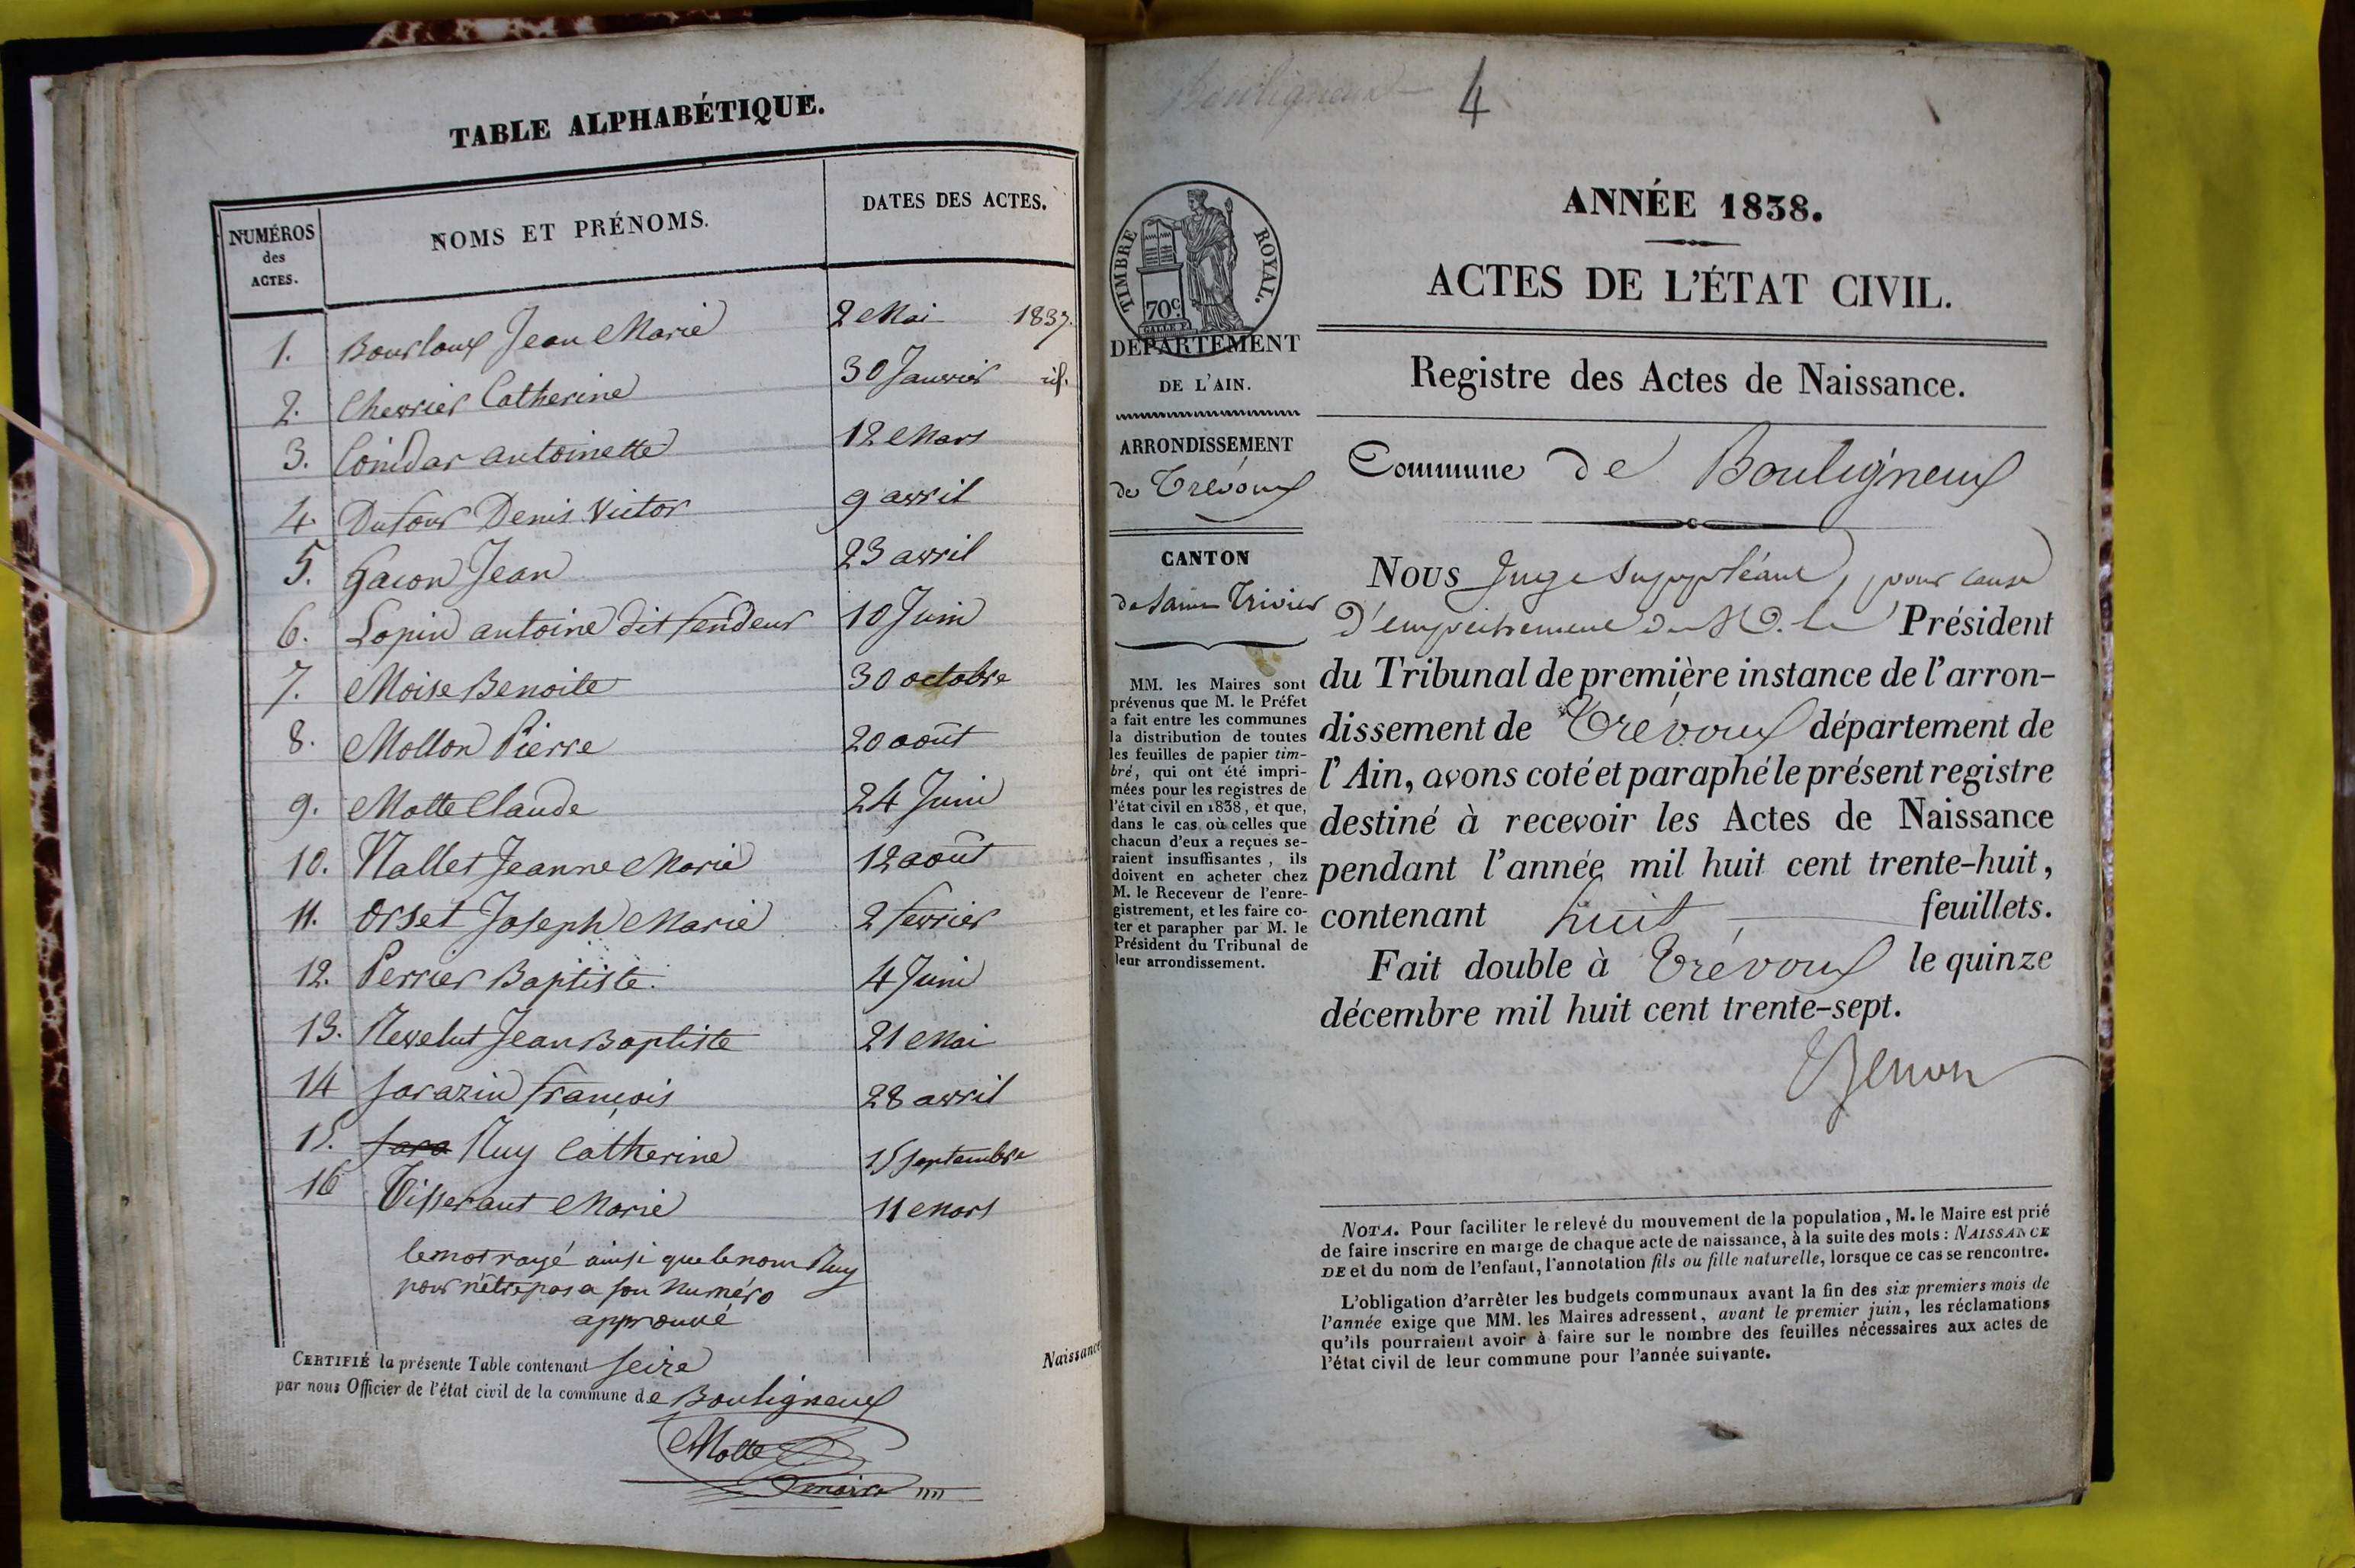 TABLE ALPHABÉTIQUE.
NUMÉROS
des
ACTES.
NOMS ET PRÉNOMS.
DATES DES ACTES.
1. Bourloux Jean Marie 2 Mai 1837.
2. Chevrier Catherine 30 Janvier id.
3. Coindar antoinette 12 Mars
4. Dufour Denis Victor 9 avril
5. Gacon Jean 23 avril
6. Lopin antoine dit fendeur 10 Juin
7. Moise Benoite 30 octobre
8. Mollon Pierre 20 août
9. Motte Claude 24 Juin
10. Nallet Jeanne Marie 12 août
11. Orset Joseph Marie 2 fevrier
12. Perrier Baptiste. 4 Juin
13. Revelut Jean Baptiste 21 Mai
14 Sarazin françois 28 avril
15. Sara Ruy Catherine 15 Septembre
16 Tisseraut Marie 11 Mars
le mot rayé ainsi que le nom Ruy
pour n'être pas a son Numéro
approuvé
CERTIFIÉ la présente Table contenant Seize
par nous Officier de l'état civil de la commune de Bouligneux
Motte
maire
Naissance
Bouligneux
4
TIMBRE ROYAL.
70c.
DÉPARTEMENT
DE L'AIN.
ARRONDISSEMENT
de Trévoux
CANTON
de Saint Trivier
MM. les Maires sont
prévenus que M. le Préfet
a fait entre les communes
la distribution de toutes
les feuilles de papier tim-
bré, qui ont été impri-
mées pour les registres de
l'état civil en 1838, et que,
dans le cas où celles que
chacun d'eux a reçues se-
raient insuffisantes, ils
doivent en acheter chez
M. le Receveur de l'enre-
gistrement, et les faire co-
ter et parapher par M. le
Président du Tribunal de
leur arrondissement.
ANNÉE 1838.
ACTES DE L'ÉTAT CIVIL.
Registre des Actes de Naissance.
Commune de Bouligneux
NOUS Juge Suppléant, pour cause
D'empêchement de M. le Président
du Tribunal de première instance de l'arron-
dissement de Trévoux département de
l'Ain, avons coté et paraphé le présent registre
destiné à recevoir les Actes de Naissance
pendant l'année mil huit cent trente-huit,
contenant huit feuillets.
Fait double à Trévoux le quinze
décembre mil huit cent trente-sept.
NOTA. Pour faciliter le relevé du mouvement de la population, M. le Maire est prié
de faire inscrire en marge de chaque acte de naissance, à la suite des mots : NAISSANCE
DE et du nom de l'enfant, l'annotation fils ou fille naturelle, lorsque ce cas se rencontre.
L'obligation d'arrêter les budgets communaux avant la fin des six premiers mois de
l'année exige que MM. les Maires adressent, avant le premier juin, les réclamations
qu'ils pourraient avoir à faire sur le nombre des feuilles nécessaires aux actes de
l'état civil de leur commune pour l'année suivante.